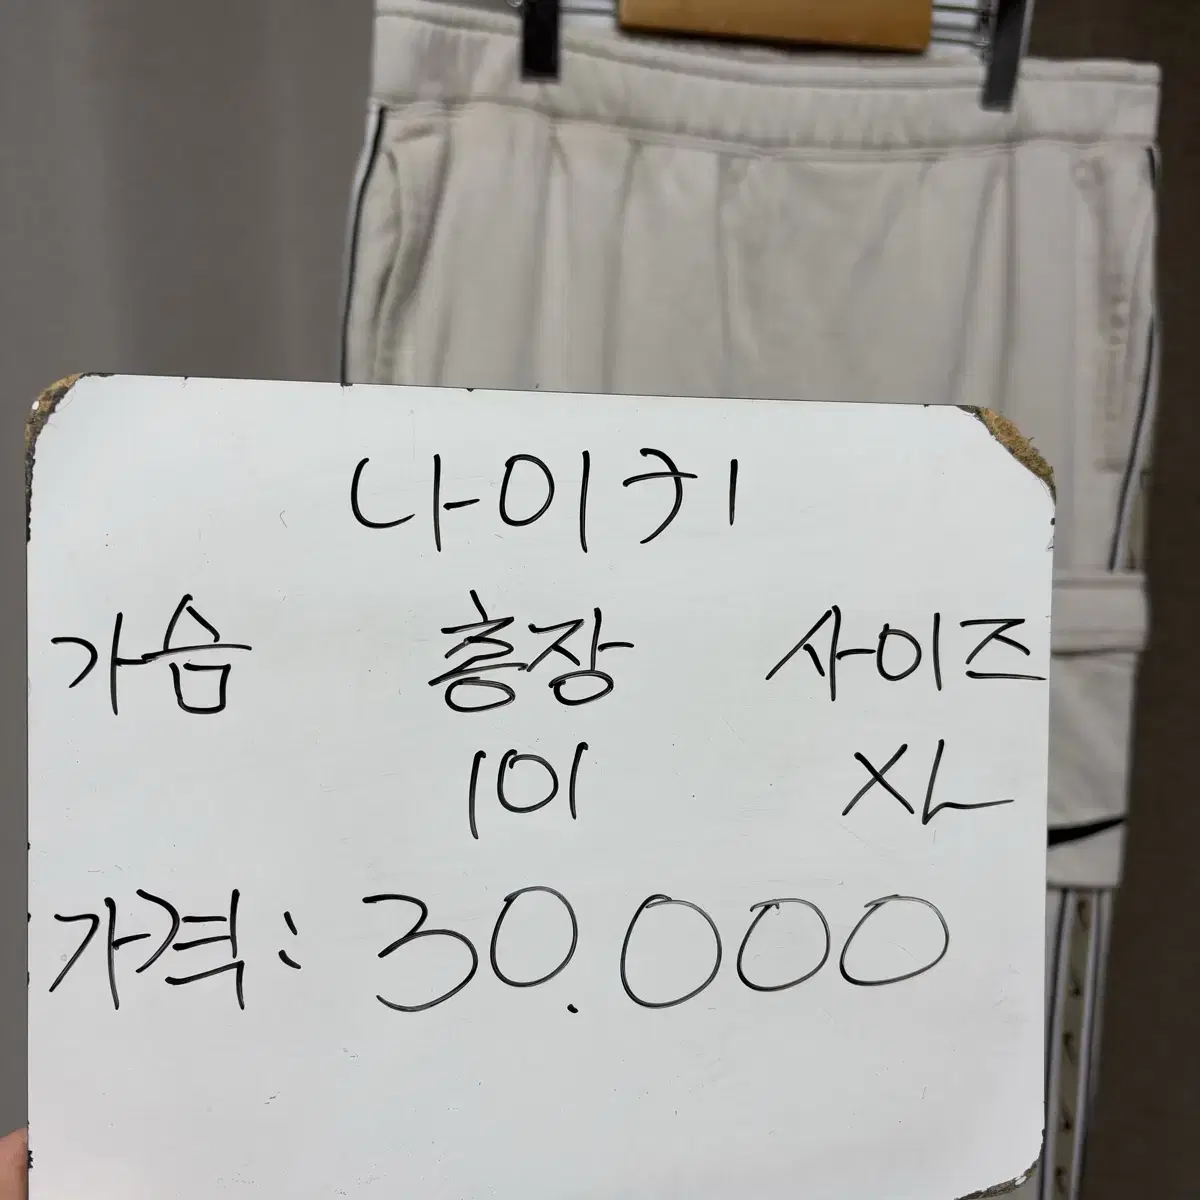 나이키
가슴 총장 사이즈
101 XL
가격: 30.000